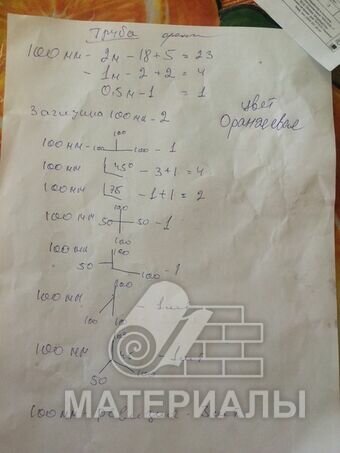 Труба
100 мм - 2м - 18+5 = 23
- 1м - 2 + 2 = 4
0,5м - 1 = 1
Заглушка 100 мм - 2
цвет
Оранжевая
100
100 мм - 100 - 1
100 мм 45° - 3+1 = 4
100 мм - 1+1 = 2
100
100 мм 50 50 - 1
100
100
100 мм
50 100 - 1
100 мм 100
100 100 - 1
100
100 мм - 1
50 100
МАТЕРИАЛЫ
100 мм